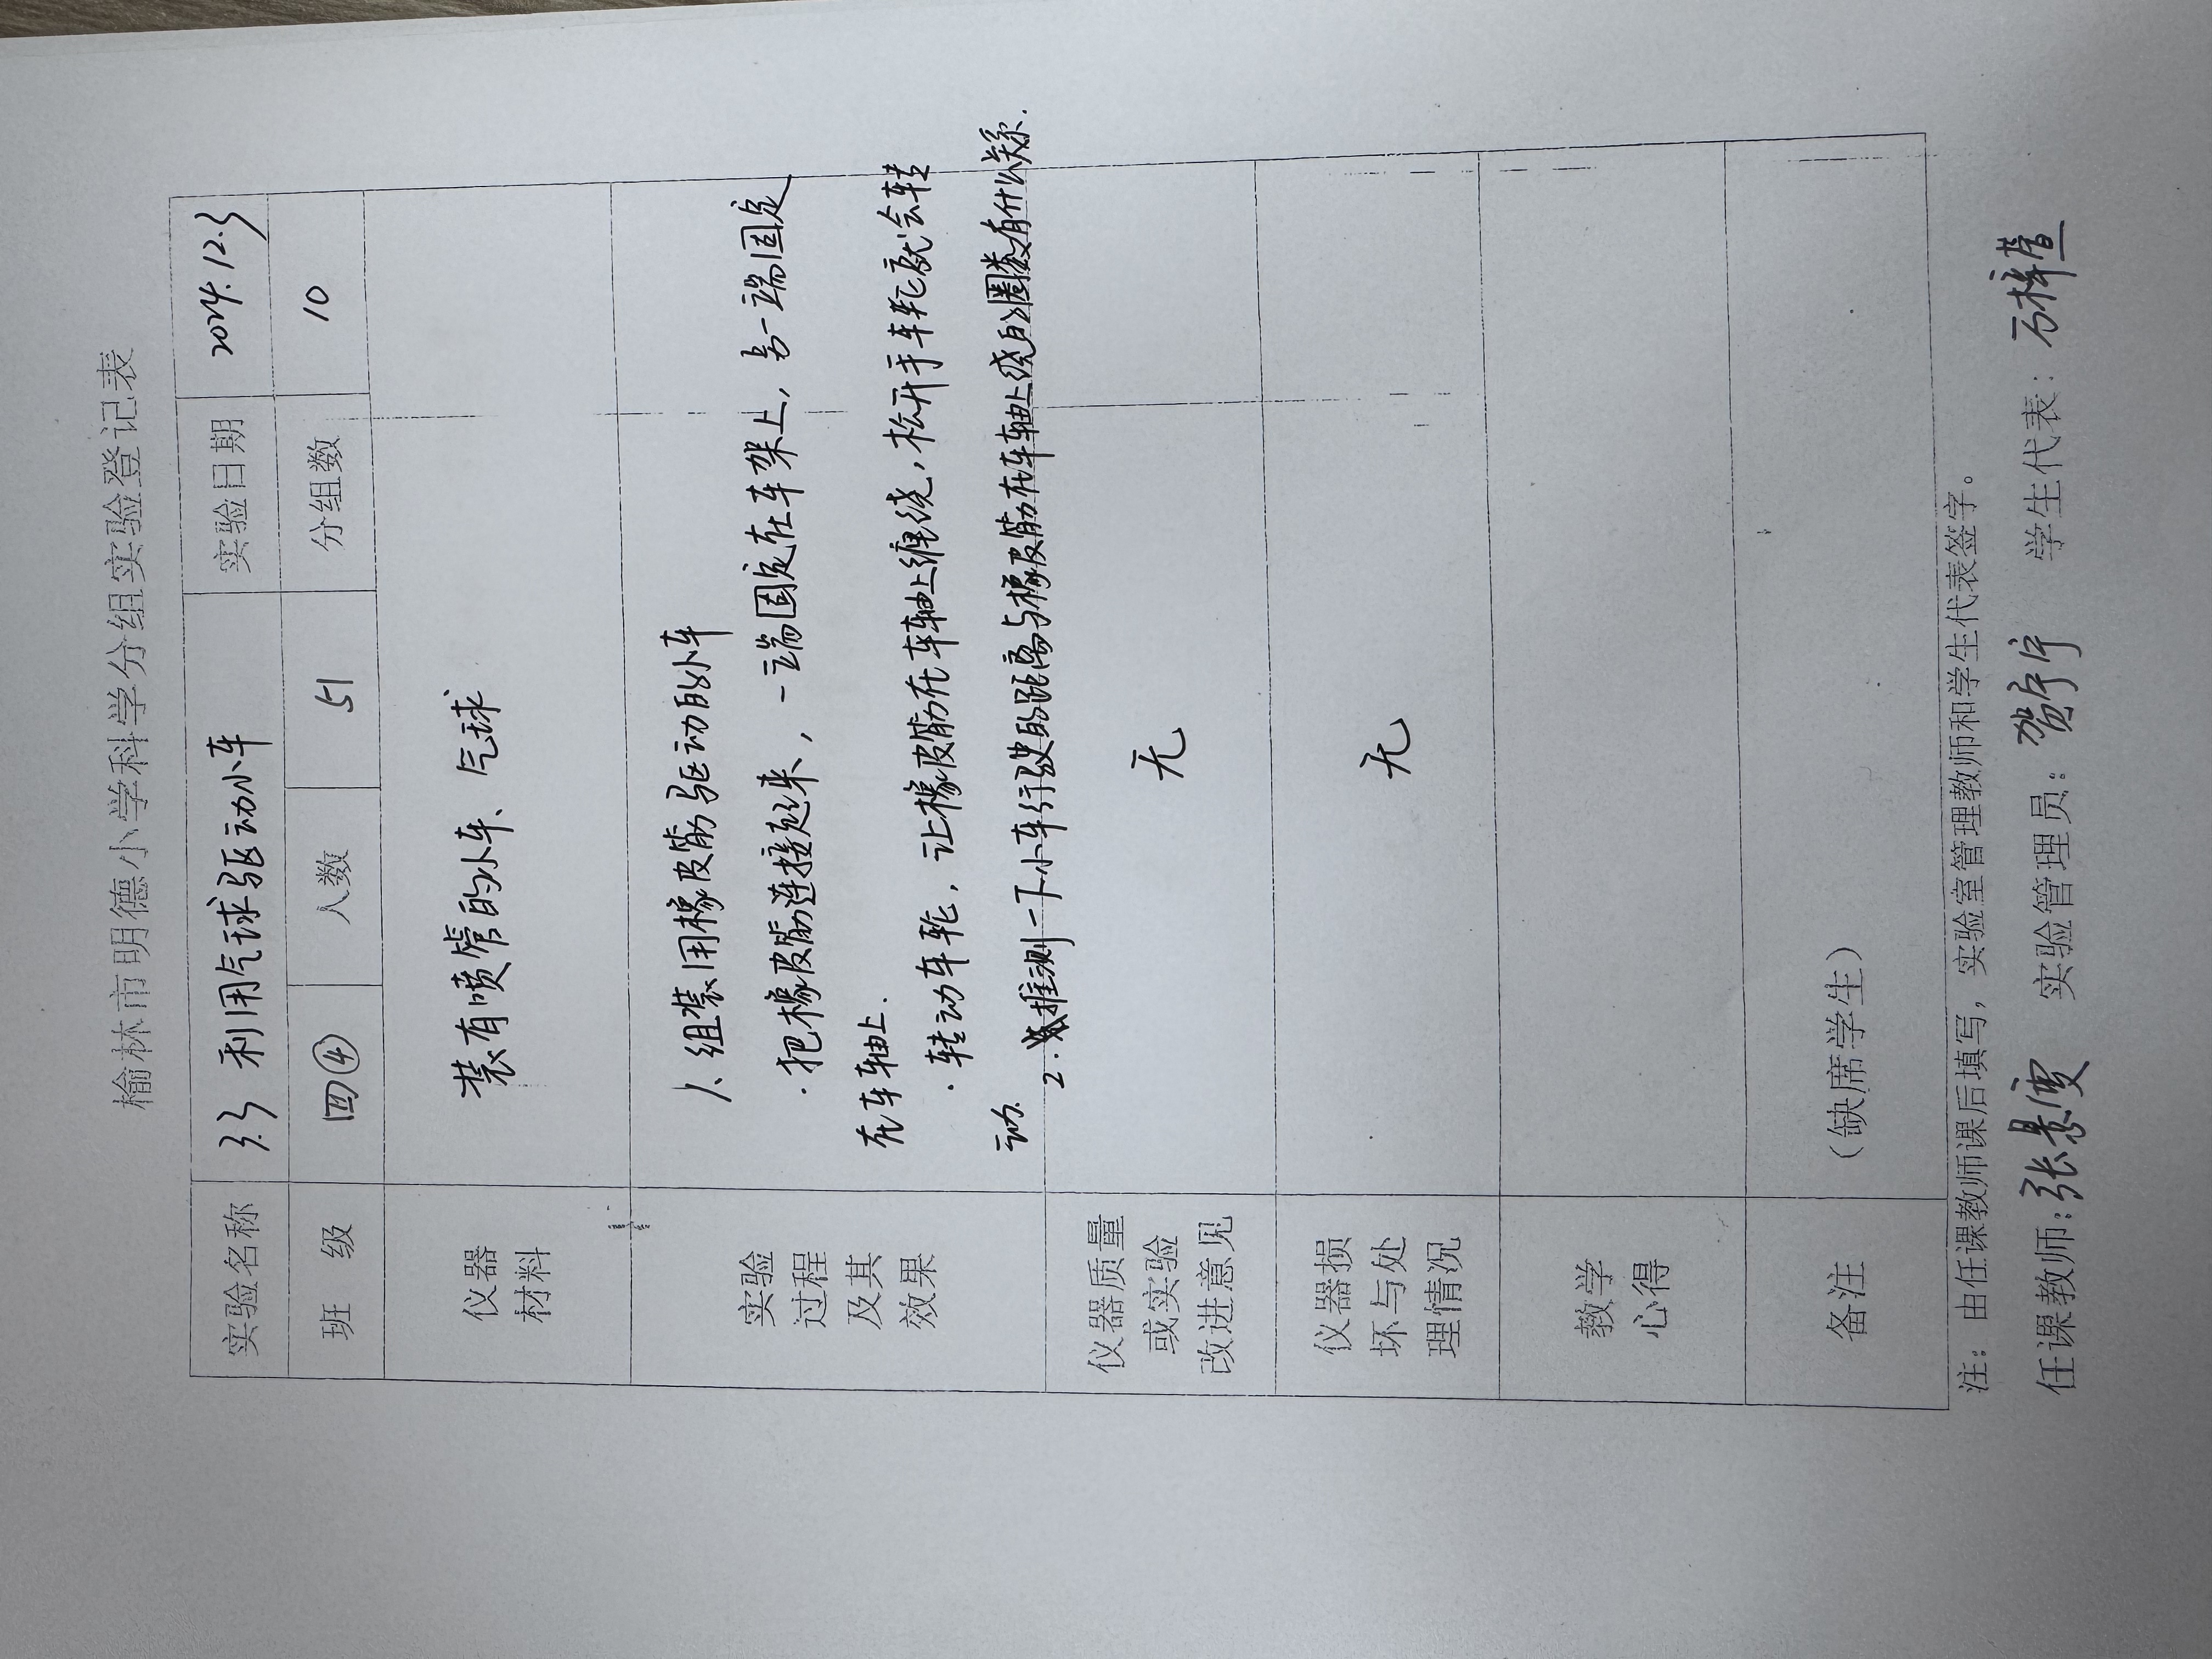 榆林市明德小学科学分组实验登记表
实验名称 3.3 利用气球驱动小车 实验日期 2024.12.3
班 级 四④ 人数 51 分组数 10
仪器
材料
装有喷管的小车、气球
实验
过程
及其
效果
1、组装用橡皮筋驱动的小车
·把橡皮筋连接起来，一端固定在车架上，另一端固定
在车轴上.
·转动车轮，让橡皮筋在车轴上缠绕，松开手车轮就会转
动.
2.推测一下小车行驶的距离与橡皮筋在车轴上绕的圈数有什么关系.
仪器质量
或实验
改进意见
无
仪器损
坏与处
理情况
无
教学
心得
备注
（缺席学生）
注：由任课教师课后填写，实验室管理教师和学生代表签字。
任课教师：张景雯 实验管理员：贺宁宁 学生代表：